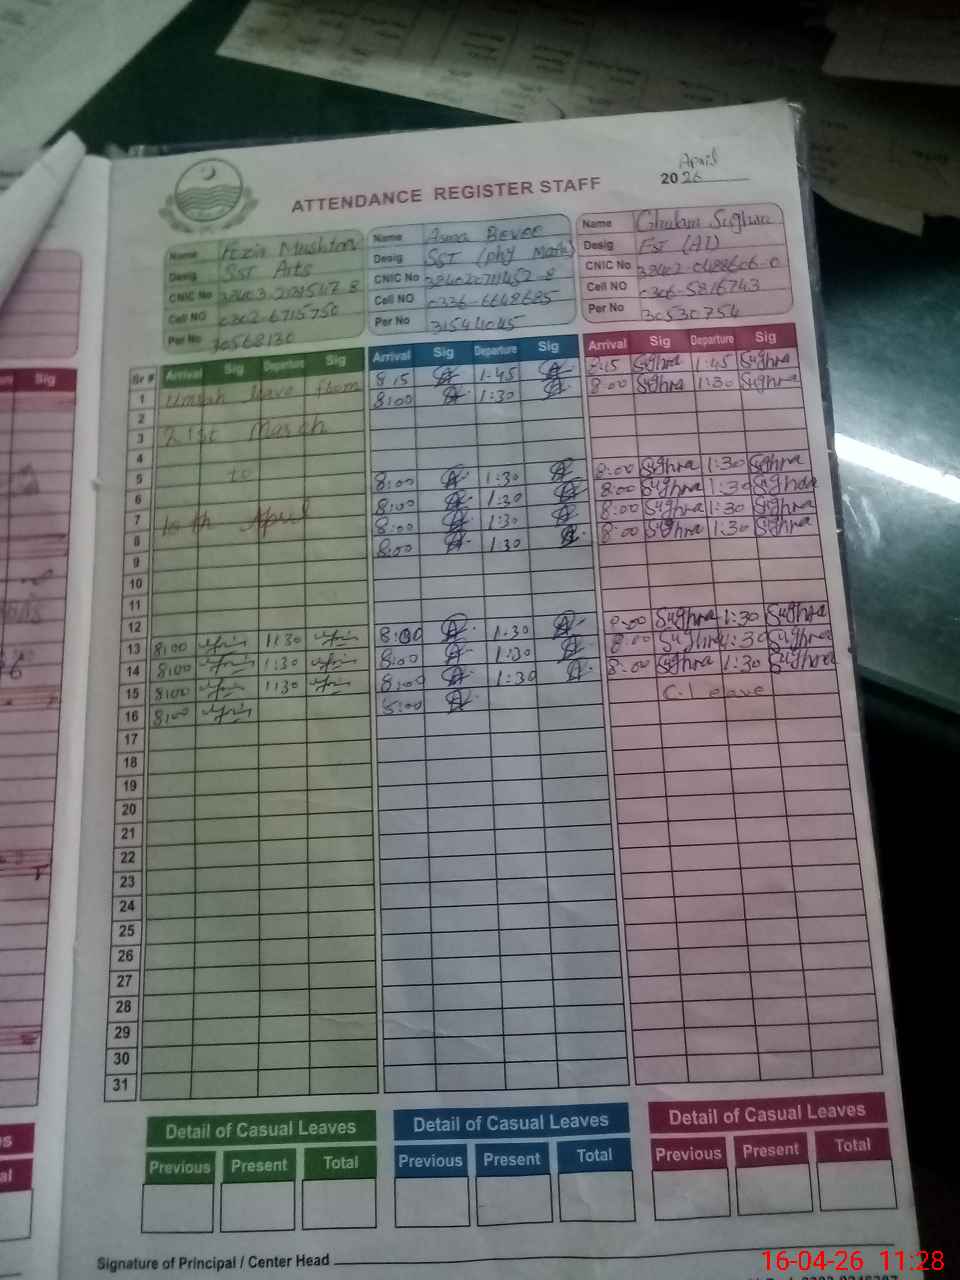 April
ATTENDANCE REGISTER STAFF 2026
Name Mushtaq
Desig SST Arts
CNIC No
Cell NO 0302-6715750
Per No 30568130
Name Asma
Desig SST (Phy Math)
CNIC No
Cell NO 0336-6648685
Per No
Name Ghulam Sughra
Desig EST (AT)
CNIC No 38402-0488606-0
Cell NO 0306-5816743
Per No 30530754
Sr # Arrival Sig Departure Sig Arrival Sig Departure Sig Arrival Sig Departure Sig
1 Umrah leave from 8:15 1:45 8:15 Sughra 1:45 Sughra
2 8:00 1:30 8:00 Sughra 1:30 Sughra
3 21st March
4
5 to
6 8:00 1:30 8:00 Sughra 1:30 Sughra
7 10th April 8:00 1:30 8:00 Sughra 1:30 Sughra
8 8:00 1:30 8:00 Sughra 1:30 Sughra
9 8:00 1:30 8:00 Sughra 1:30 Sughra
10
11
12
13 8:00 1:30 8:00 1:30 8:00 Sughra 1:30 Sughra
14 8:00 1:30 8:00 1:30 8:00 Sughra 1:30 Sughra
15 8:00 1:30 8:00 1:30 8:00 Sughra 1:30 Sughra
16 8:00 8:00 C.Leave
17
18
19
20
21
22
23
24
25
26
27
28
29
30
31
Detail of Casual Leaves Detail of Casual Leaves Detail of Casual Leaves
Previous Present Total Previous Present Total Previous Present Total
Signature of Principal / Center Head
16-04-26 11:28